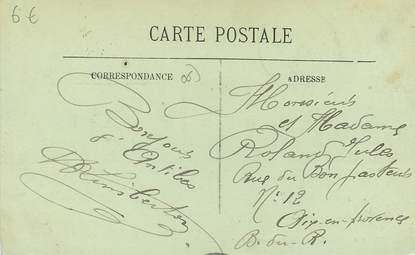 6€
CARTE POSTALE
CORRESPONDANCE
ADRESSE
Bonjour
d'Antibes
Monsieur
et Madame
Roland Jules
rue du Bon Pasteur
N° 12
Aix-en-Provence
B.-du-R.